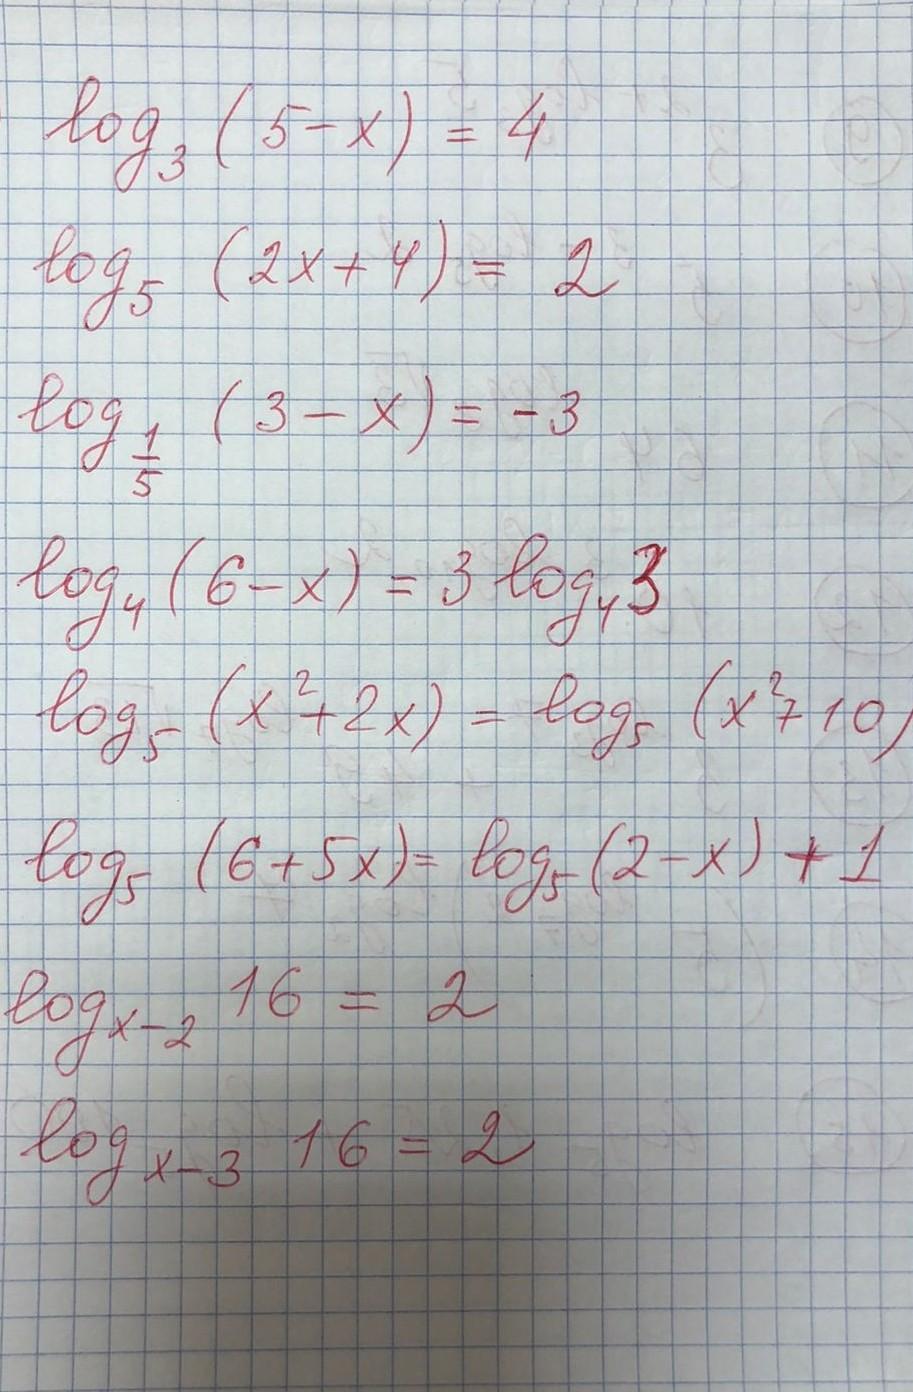 log₃ (5-x) = 4
log₅ (2x+4) = 2
log_{1/5} (3-x) = -3
log₄ (6-x) = 3 log₄ 3
log₅ (x²+2x) = log₅ (x²+10)
log₅ (6+5x) = log₅ (2-x) + 1
log_{x-2} 16 = 2
log_{x-3} 16 = 2